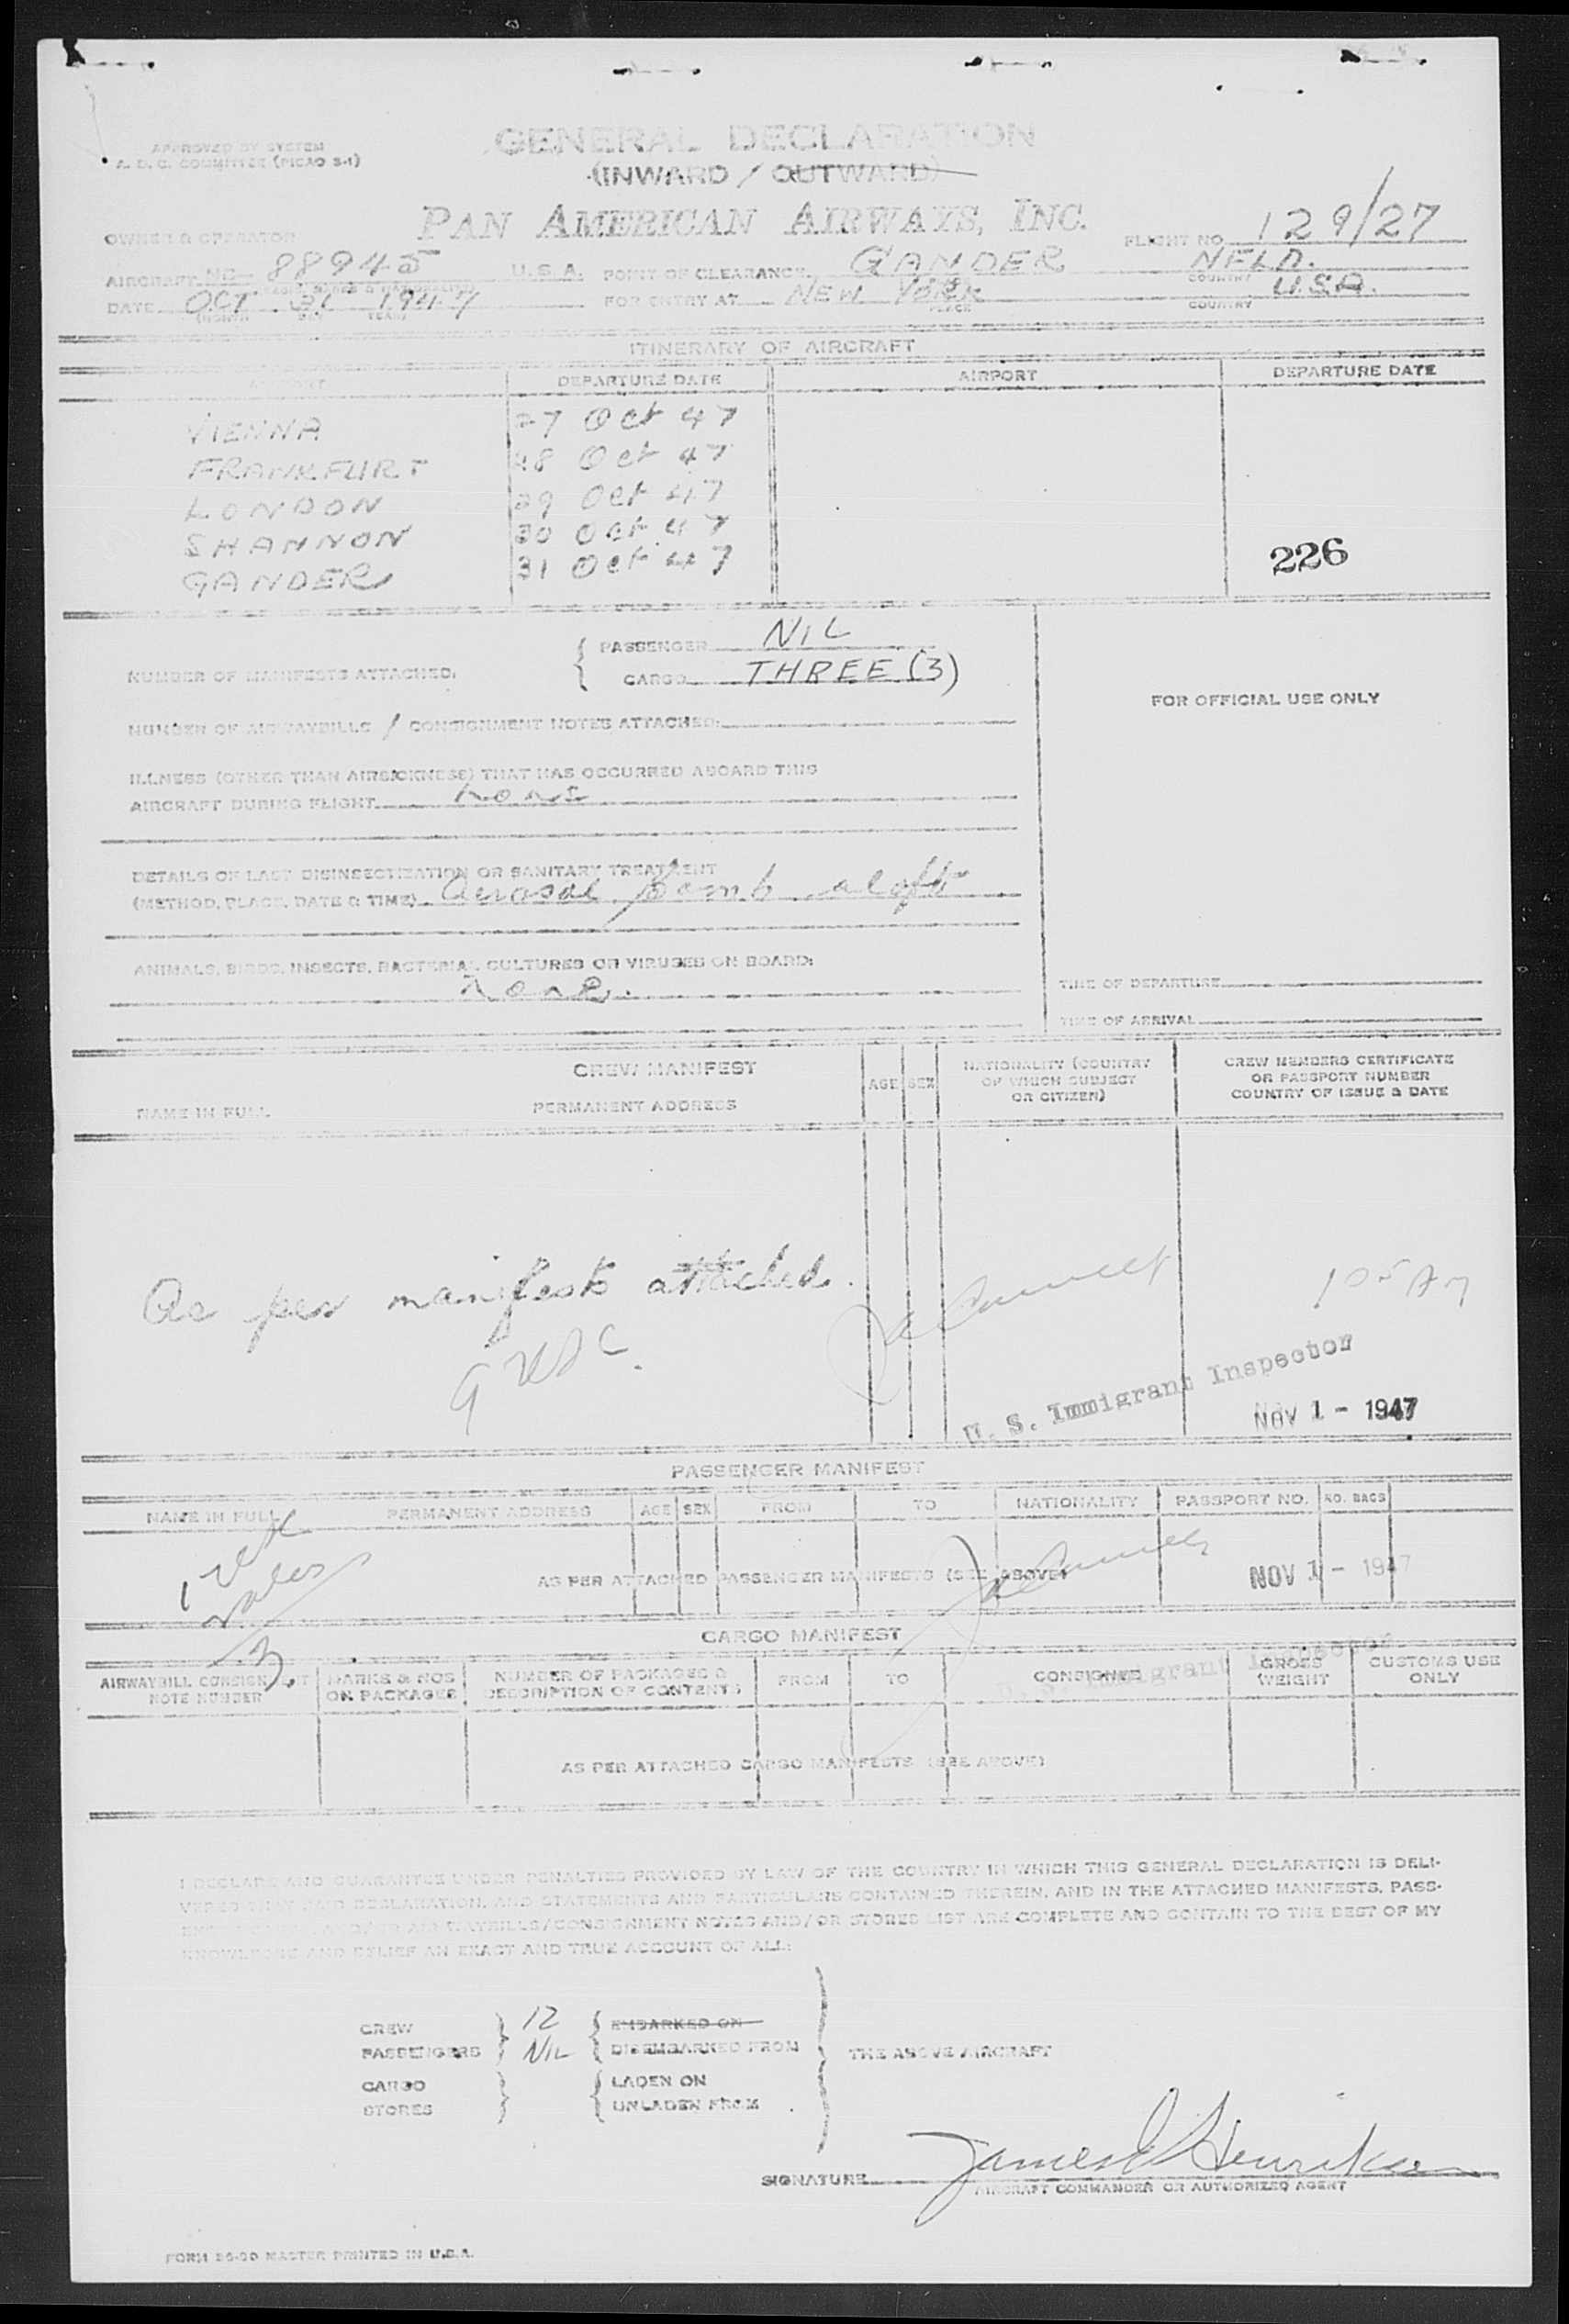 APPROVED BY SYSTEM
A. D. C. COMMITTEE (PICAO S-1)
GENERAL DECLARATION
(INWARD / OUTWARD)
PAN AMERICAN AIRWAYS, INC.
OWNER & OPERATOR
FLIGHT NO. 129/27
AIRCRAFT NC- 88945 U.S.A. POINT OF CLEARANCE GANDER NFLD.
COUNTRY
DATE OCT 31 1947 FOR ENTRY AT NEW YORK U.S.A.
(MONTH DAY YEAR) PLACE COUNTRY
ITINERARY OF AIRCRAFT
DEPARTURE DATE AIRPORT DEPARTURE DATE
VIENNA 27 Oct 47
FRANKFURT 28 Oct 47
LONDON 29 Oct 47
SHANNON 30 Oct 47
GANDER 31 Oct 47
226
NUMBER OF MANIFESTS ATTACHED:
PASSENGER NIL
CARGO THREE (3)
FOR OFFICIAL USE ONLY
NUMBER OF AIRWAYBILLS / CONSIGNMENT NOTES ATTACHED:
ILLNESS (OTHER THAN AIRSICKNESS) THAT HAS OCCURRED ABOARD THIS
AIRCRAFT DURING FLIGHT none
DETAILS OF LAST DISINSECTIZATION OR SANITARY TREATMENT
(METHOD, PLACE, DATE & TIME) Aerosol bomb aloft
ANIMALS, BIRDS, INSECTS, BACTERIAL CULTURES OR VIRUSES ON BOARD:
none.
TIME OF DEPARTURE
TIME OF ARRIVAL
CREW MANIFEST
NAME IN FULL PERMANENT ADDRESS AGE SEX NATIONALITY (COUNTRY OF WHICH SUBJECT OR CITIZEN) CREW MEMBERS CERTIFICATE OR PASSPORT NUMBER COUNTRY OF ISSUE & DATE
As per manifests attached.
9 USC.
U. S. Immigrant Inspector
NOV 1 - 1947
PASSENGER MANIFEST
NAME IN FULL PERMANENT ADDRESS AGE SEX FROM TO NATIONALITY PASSPORT NO. NO. BAGS
AS PER ATTACHED PASSENGER MANIFESTS (SEE ABOVE)
NOV 1 - 1947
CARGO MANIFEST
AIRWAYBILL CONSIGNMENT NOTE NUMBER MARKS & NOS ON PACKAGES NUMBER OF PACKAGES & DESCRIPTION OF CONTENTS FROM TO CONSIGNEE GROSS WEIGHT CUSTOMS USE ONLY
AS PER ATTACHED CARGO MANIFESTS (SEE ABOVE)
I DECLARE AND GUARANTEE UNDER PENALTIES PROVIDED BY LAW OF THE COUNTRY IN WHICH THIS GENERAL DECLARATION IS DELI-
VERED THAT THIS DECLARATION, AND STATEMENTS AND PARTICULARS CONTAINED THEREIN, AND IN THE ATTACHED MANIFESTS, PASS-
AIRWAYBILLS/CONSIGNMENT NOTES AND/OR STORES LIST ARE COMPLETE AND CONTAIN TO THE BEST OF MY
KNOWLEDGE AND BELIEF AN EXACT AND TRUE ACCOUNT OF ALL:
CREW 12 EMBARKED ON
PASSENGERS NIL DISEMBARKED FROM THE ABOVE AIRCRAFT
CARGO LADEN ON
STORES UNLADEN FROM
SIGNATURE James Henriksen
AIRCRAFT COMMANDER OR AUTHORIZED AGENT
FORM 26-90 MASTER PRINTED IN U.S.A.